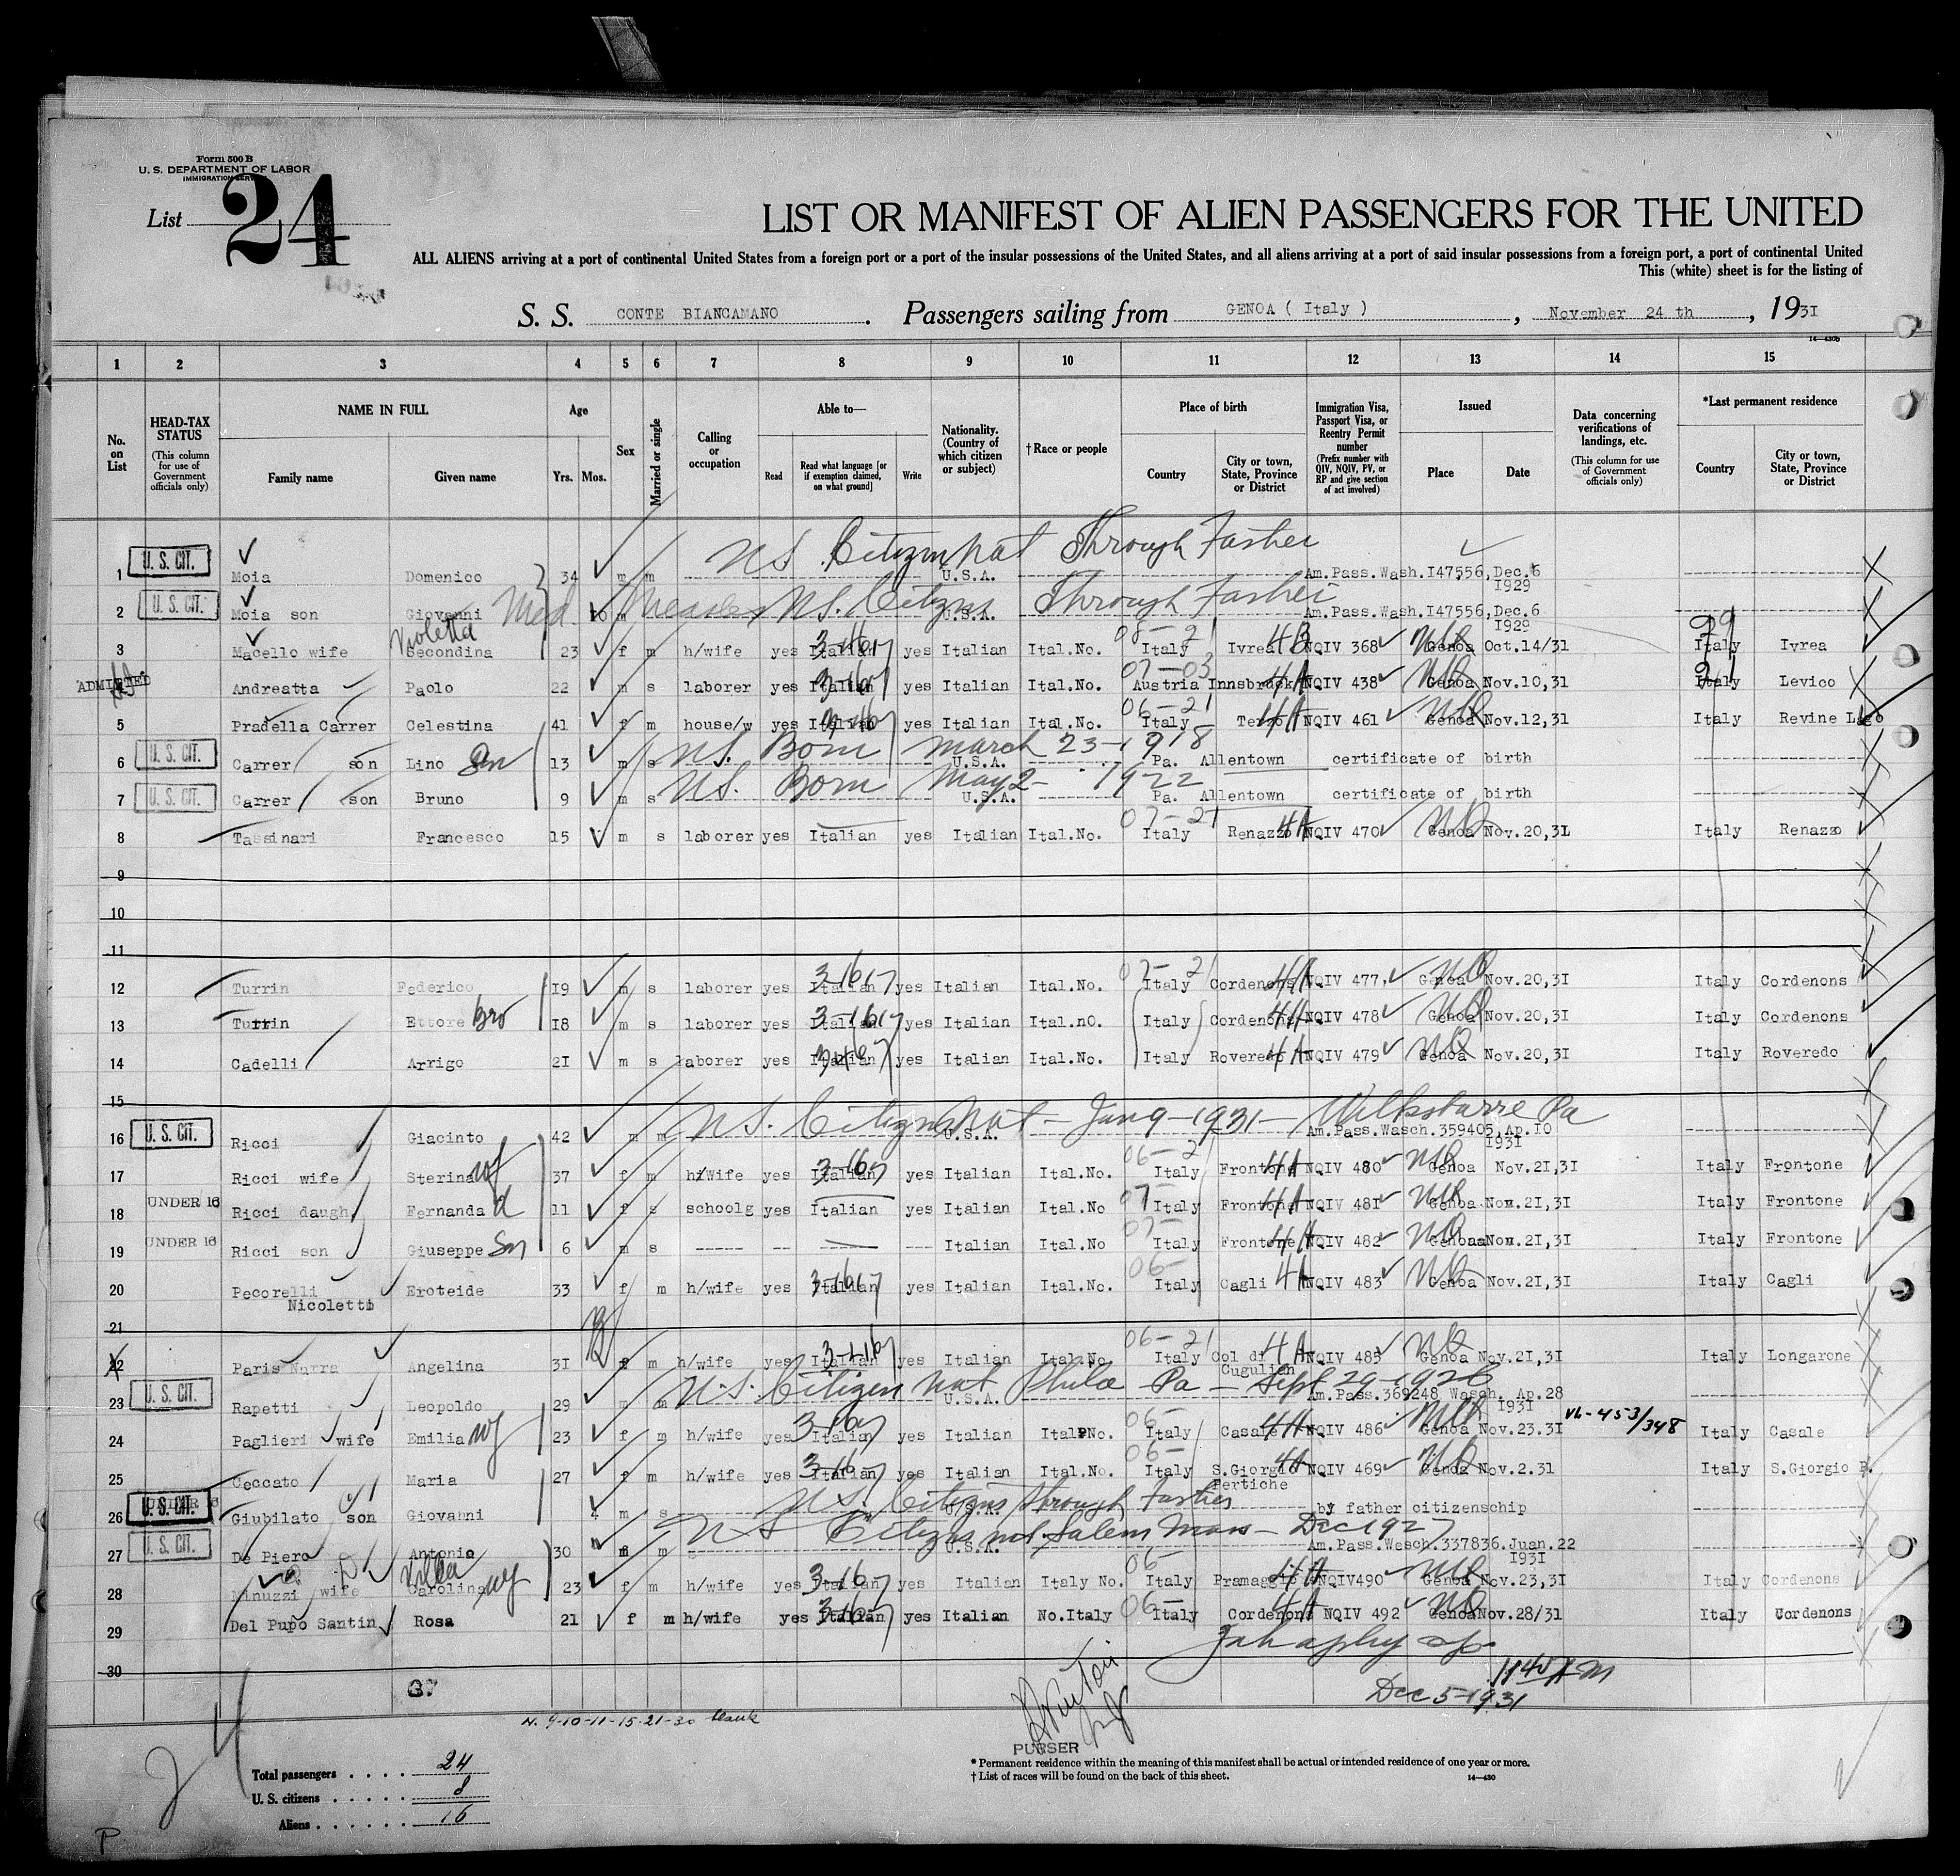 Form 500 B
U. S. DEPARTMENT OF LABOR
IMMIGRATION SERVICE
List 24
LIST OR MANIFEST OF ALIEN PASSENGERS FOR THE UNITED
ALL ALIENS arriving at a port of continental United States from a foreign port or a port of the insular possessions of the United States, and all aliens arriving at a port of said insular possessions from a foreign port, a port of continental United
This (white) sheet is for the listing of
S. S. CONTE BIANCAMANO . Passengers sailing from GENOA ( Italy ) , November 24 th , 1931
14—430b
1 2 3 4 5 6 7 8 9 10 11 12 13 14 15
No. on List
HEAD-TAX STATUS (This column for use of Government officials only)
NAME IN FULL Family name Given name
Age Yrs. Mos.
Sex
Married or single
Calling or occupation
Able to— Read Read what language [or if exemption claimed, on what ground] Write
Nationality. (Country of which citizen or subject)
†Race or people
Place of birth Country City or town, State, Province or District
Immigration Visa, Passport Visa, or Reentry Permit number (Prefix number with QIV, NQIV, PV, or RP and give section of act involved)
Issued Place Date
Data concerning verifications of landings, etc. (This column for use of Government officials only)
*Last permanent residence Country City or town, State, Province or District
US Citizen nat Through Father
1 U. S. CIT. Moia Domenico 34 m m U.S.A. Am.Pass.Wash.I47556,Dec.6 I929
Med Measles US. Citizen Through Father
2 U. S. CIT. Moia son Giovanni m U.S.A. Am.Pass.Wash.I47556,Dec.6 I929
Violetta 3-16 08-21 4B 99
3 Macello wife Secondina 23 f m h/wife yes Italian yes Italian Ital.No. Italy Ivrea NQIV 368 Genoa Oct.14/31 Italy Ivrea
ADMITTED 07-03 4A
4 Andreatta Paolo 22 m s laborer yes Italian yes Italian Ital.No. Austria Innsbruck NQIV 438 Genoa Nov.10,31 Italy Levico
06-21 4A
5 Pradella Carrer Celestina 41 f m house/w yes Italian yes Italian Ital.No. Italy NQIV 461 Genoa Nov.12,31 Italy Revine Lago
US. Born March 23-1918
6 U. S. CIT. Carrer son Lino Sn 13 m s U.S.A. Pa. Allentown certificate of birth
US. Born May 2- 1922
7 U. S. CIT. Carrer son Bruno 9 m s U.S.A. Pa. Allentown certificate of birth
07-21 4A
8 Tassinari Francesco 15 m s laborer yes Italian yes Italian Ital.No. Italy Renazzo NQIV 470 Genoa Nov.20,3I Italy Renazzo
9
10
11
3-16 07-21 4A
12 Turrin Federico I9 m s laborer yes Italian yes Italian Ital.No. Italy Cordenons NQIV 477, Genoa Nov.20,3I Italy Cordenons
13 Turrin Ettore Bro I8 m s laborer yes Italian yes Italian Ital.nO. Italy Cordenons NQIV 478 Genoa Nov.20,3I Italy Cordenons
14 Cadelli Arrigo 2I m s laborer yes Italian yes Italian Ital.No. Italy Roveredo NQIV 479 Genoa Nov.20,3I Italy Roveredo
15
US. Citizen Nat - Jan 9-1931- Wilksbarre Pa
16 U. S. CIT. Ricci Giacinto 42 m m U.S.A. Am.Pass.Wasch.359405,Ap.I0 I93I
17 Ricci wife Sterina wf 37 f m h/Wife yes Italian yes Italian Ital.No. Italy Frontone NQIV 480 Genoa Nov.2I,3I Italy Frontone
18 UNDER 16 Ricci daugh. Fernanda d 11 f s schoolg yes Italian yes Italian Ital.No Italy Frontone NQIV 481 Genoa Nov.2I,3I Italy Frontone
19 UNDER 16 Ricci son Giuseppe Sn 6 m s ----- -- -- Italian Ital.No Italy Frontone NQIV 482 Genoa Nov.2I,3I Italy Frontone
20 Pecorelli Nicoletti Eroteide 33 f m h/wife yes Italian yes Italian Ital.No. Italy Cagli NQIV 483 Genoa Nov.2I,3I Italy Cagli
21
06-21 4A
22 Paris Nurra Angelina 3I f m h/wife yes Italian yes Italian Ital.No Italy Col di Cugulian NQIV 485 Genoa Nov.2I,3I Italy Longarone
U.S. Citizen Nat Phila Pa - Sept 29-1926
23 U. S. CIT. Rapetti Leopoldo 29 m m U.S.A. Am.Pass.369248 Wasch. Ap.28 I93I
24 Paglieri wife Emilia wf 23 f m h/wife yes Italian yes Italian Ital No. Italy Casale NQIV 486 Genoa Nov.23.3I V6-453/348 Italy Casale
25 Ceccato Maria 27 f m h/wife yes Italian yes Italian Ital.No. Italy S.Giorgio Pertiche NQIV 469 Genoa Nov.2.31 Italy S.Giorgio P.
US. Citizen Through Father
26 U. S. CIT. Giubilato son Giovanni 4 m s U.S.A. by father citizenschip
US Citizen nat Salem Mass - Dec 1927
27 U. S. CIT. De Piero Antonio 30 m m U.S.A. Am.Pass.Wesch.337836.Juan.22 I93I
28 Minuzzi wife Carolina wf 23 f m h/wife yes Italian yes Italian Italy No. Italy Pramaggio NQIV490 Genoa Nov.23,3I Italy Cordenons
29 Del Pupo Santin Rosa 21 f m h/wife yes Italian yes Italian No.Italy Italy Cordenons NQIV 492 Genoa Nov.28/31 Italy Cordenons
30
1145 AM
Dec 5-1931
37
N. 9-10-11-15-21-30 blank
PURSER
Total passengers . . . . 24
U. S. citizens . . . . . 8
Aliens . . . . . . 16
* Permanent residence within the meaning of this manifest shall be actual or intended residence of one year or more.
† List of races will be found on the back of this sheet.
14—430
P